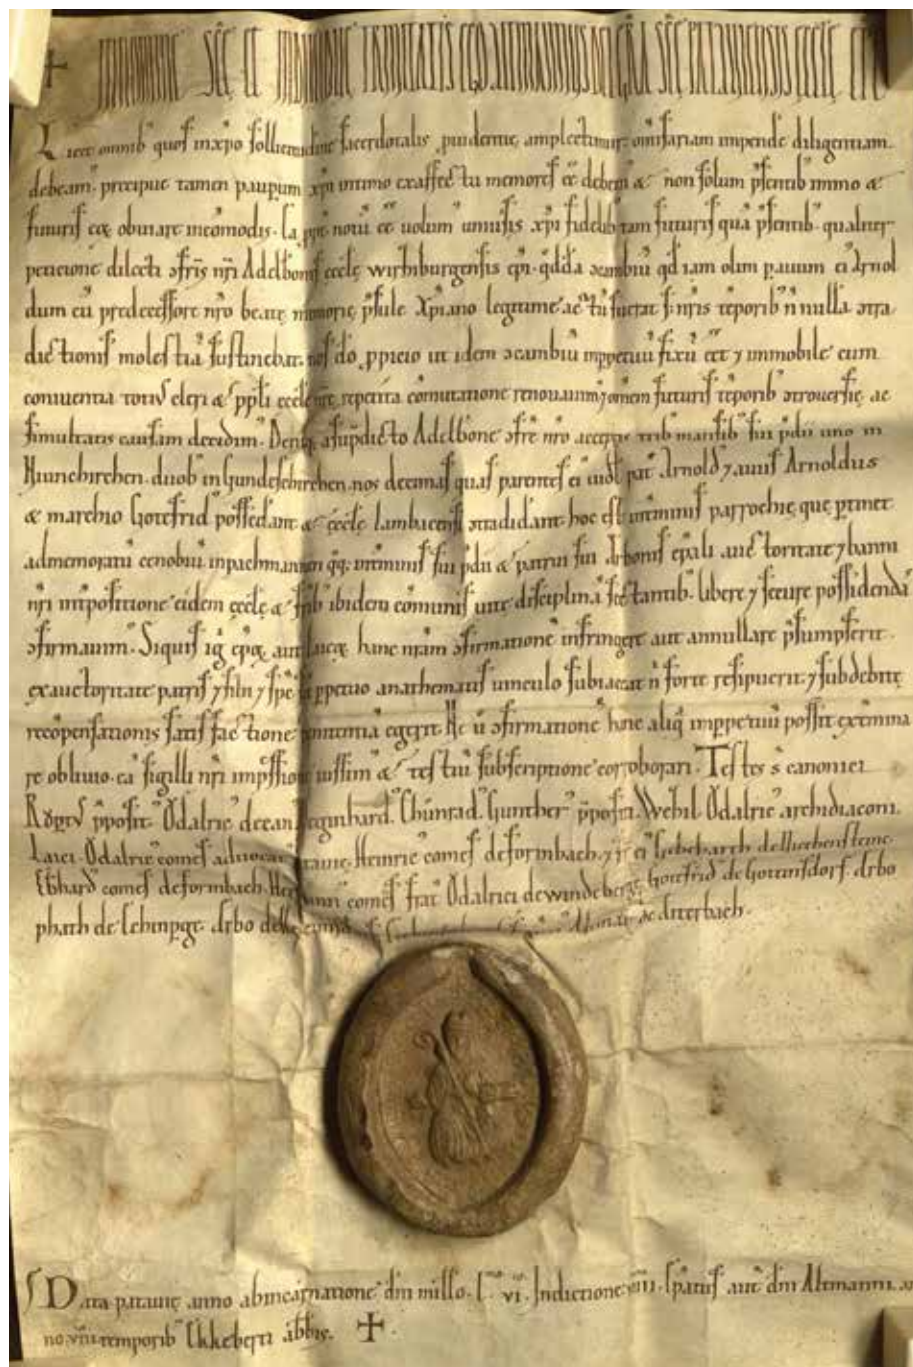 ✝ IN NOMINE SCĘ ET INDIVIDUE TRINITATIS EGO ALTMANNUS DEI GRA SCĘ PATAUIENSIS ĘCCLĘ EPC
Licet omnib quos in xpo sollicitudine sacerdotalis puidentię amplectimur omifariam impendē diligentiam
debeam precipue tamen paupum xpi intimo ex affectu memores eē debem & non solum psentib immo &
futuris eoą obuiare incōmodis. Ea ppt notū eē uolum uniusis xpi fidelib tam futuris quā psentib qualiter
peticione dilecti ɔfris nri Adelbonis ęcclę wirziburgensis epi qdda ɔcambiū qd iam olim p auum ei Arnol
dum cū predecessore nro beatę memorię psule Xpiano legitime actū fuerat s; nris tēporib n nulla ɔtra
dictionis molestiā sustinebat. nos do ppicio ut idem ɔcambiū inppetuū fixū eet 7 immobile cum
conuentia toti cleri & ppli ecclę nrę repetita cōmutatione renouauim 7 omem futuris tēporib ɔtrouersię ac
simultatis causam decidim. Deniq; a supdicto Adelbone ɔfre nro acceptis trib mansib sui pdii uno in
Niunchirchen. duob in Gundeschirchen. nos decimas quas parentes ei uidl pat Arnold 7 auus Arnoldus
& marchio Gotefrid possedant & ęcclę lambacensi ɔtradidant hoc est in tminis parrochię que ptinet
ad memoratū cenobiū in pachmannen qq; in tminis sui pdii & patrui sui Arbonis epali auctoritate 7 banni
nri intpositione eidem ęcclę & frib ibidem cōmunis uite disciplinā sectantib. libere 7 secure possidendā
ɔfirmauim. Siquis ig epoą aut laicoą hanc nram ɔfirmationē infringere aut annullare psumpserit.
ex auctoritate patris 7 filii 7 sps s ppetuo anathematis uinculo subiaceat n forte resipuerit 7 sub debitę
recōpensationis satisfactione penitentiā egerit. Ne u ɔfirmationē hanc aliq inppetuū possit extermina
re obliuio. eā sigilli nri impssione iussim & testiū subscriptione corroborari. Testes s canonici
Rodgerus pposit. Odalric decan. Meginhard. Chunrad. Gunther ppositi. Wezil. Odalric archidiaconi.
Laici. Odalric comes aduocat Heinric comes de formbach. 7
Ebhard comes de formbach. Her mann comes frat Odalrici de windeberge. Gotefrid de Gotinisdorf. Arbo
phath de Arbo de de Aterbach.
Data patauię anno ab incarnatione dni millo. Indictione pōtificatus aut dni Altmanni. a
no. VIII temporib Ekkeberti abbis. ✝.